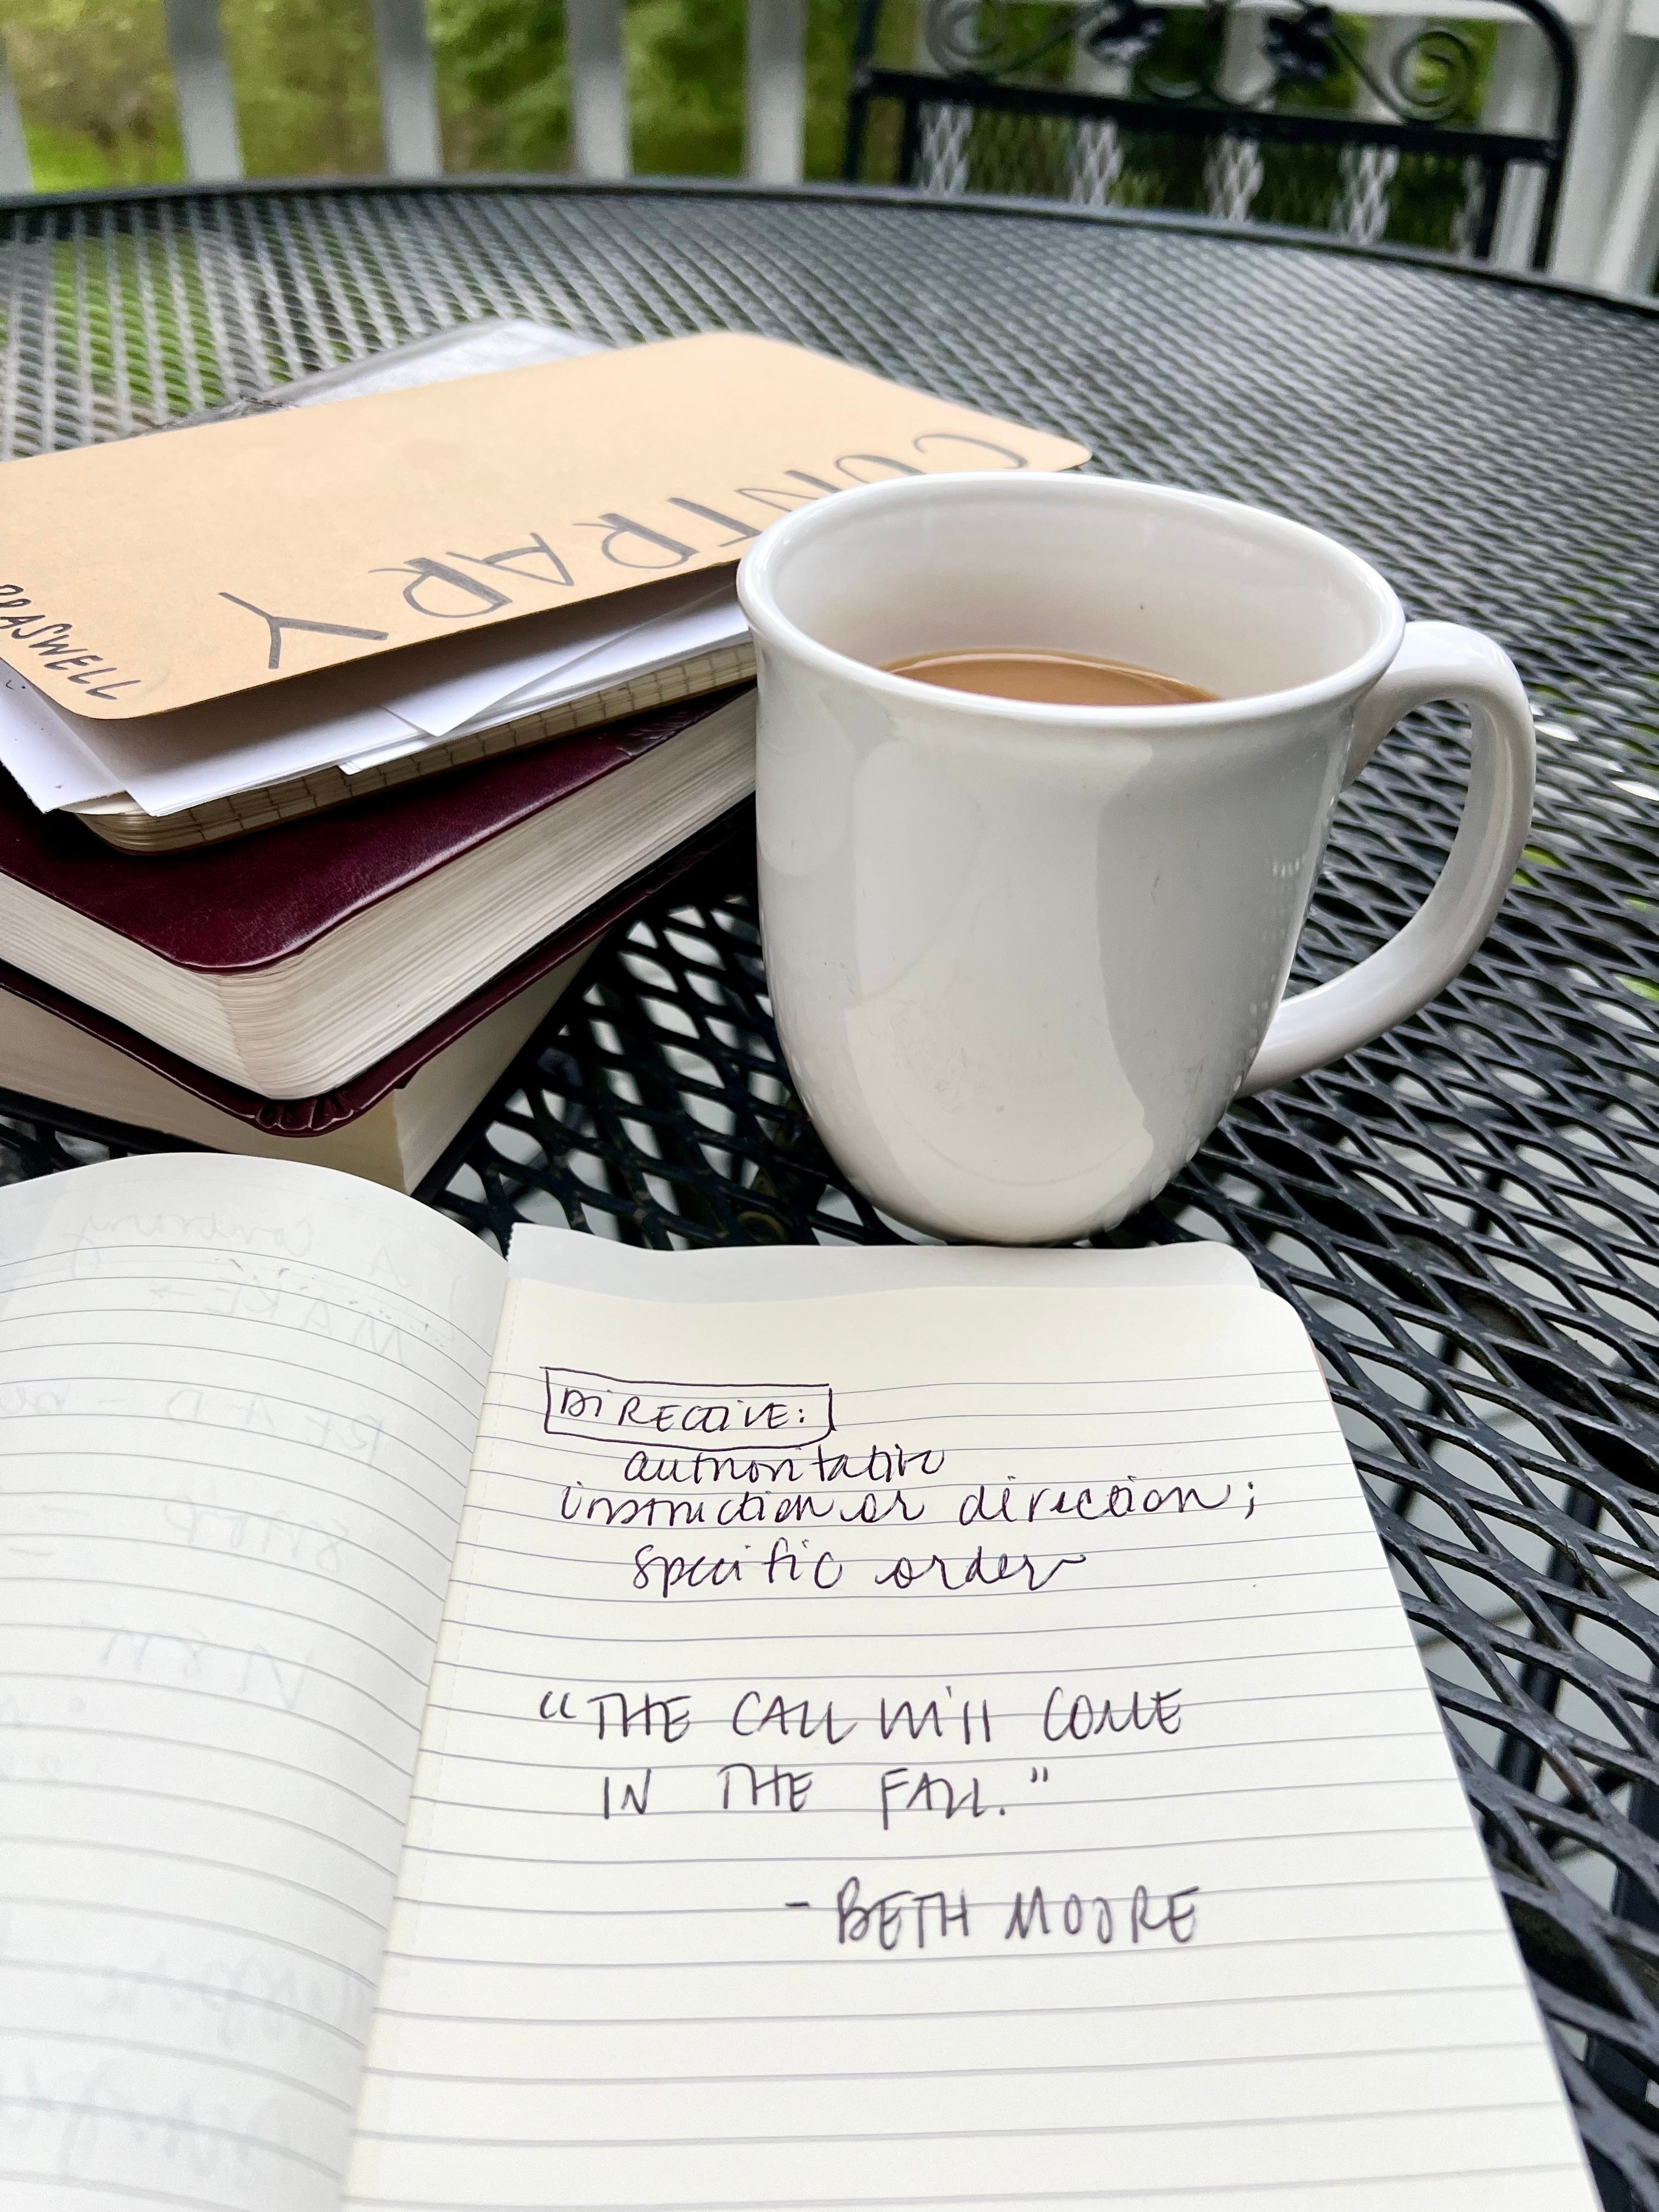 CONTRARY
BRASWELL
DIRECTIVE:
authoritative
instruction or direction;
specific order
"THE CALL Will COME
IN THE FALL."
- BETH MOORE